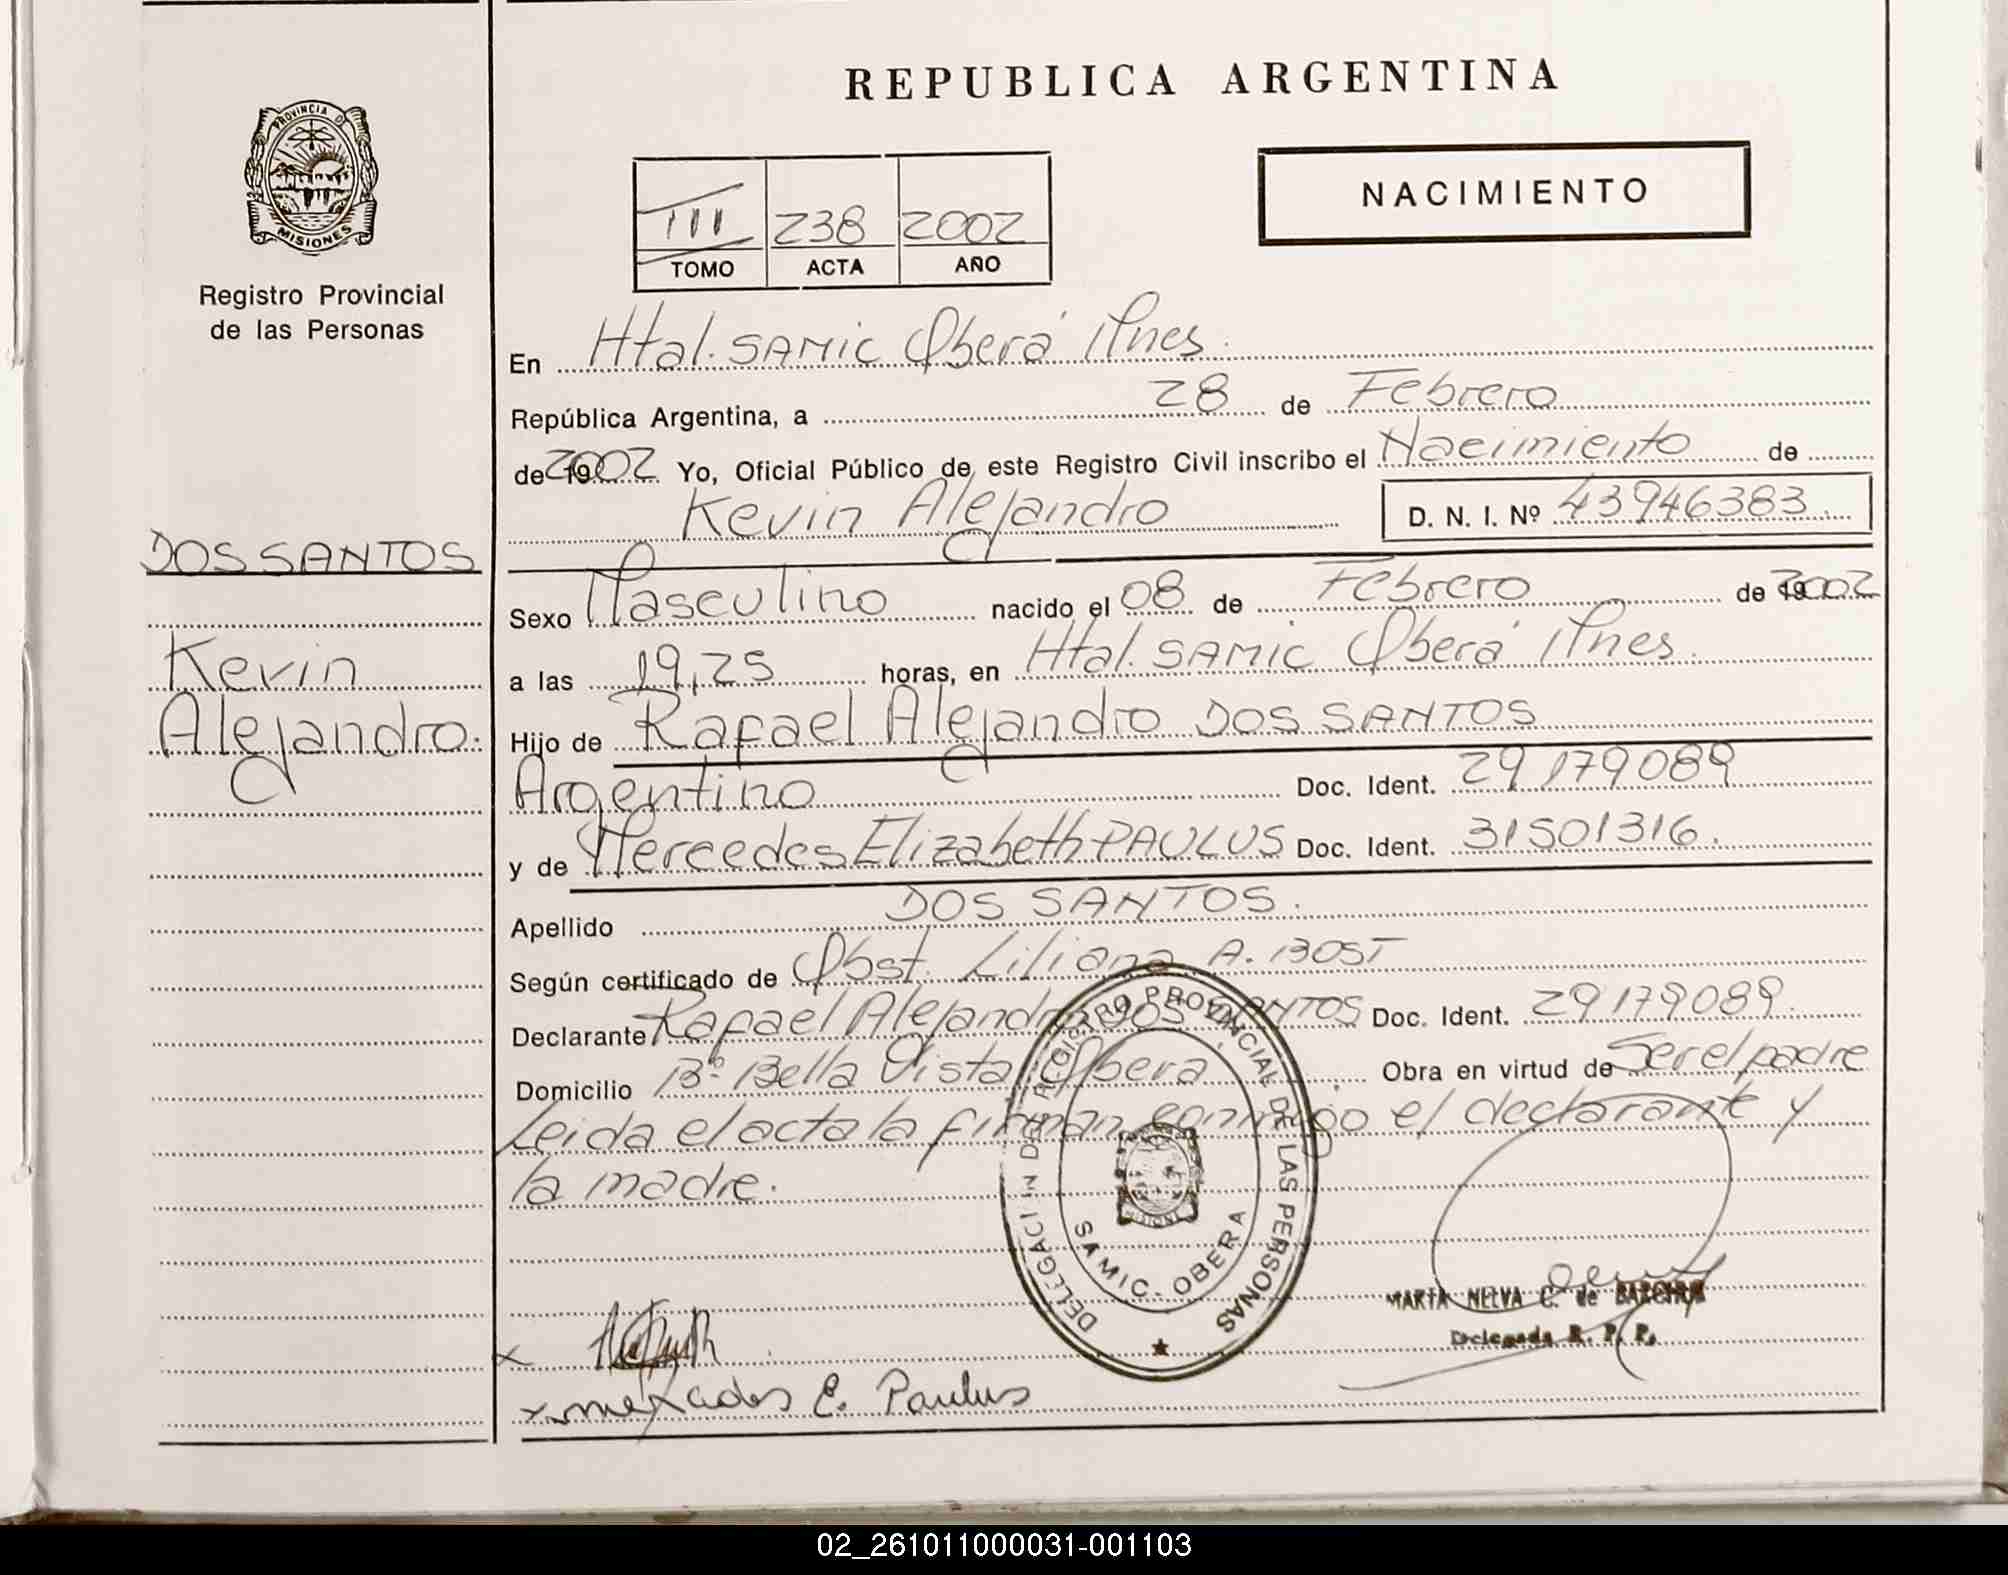 REPUBLICA ARGENTINA
PROVINCIA D
MISIONES
Registro Provincial
de las Personas
NACIMIENTO
III 238 2002
TOMO ACTA AÑO
En Htal. SAMIC Oberá Mnes.
República Argentina, a 28 de Febrero
de 2002 Yo, Oficial Público de este Registro Civil inscribo el Nacimiento de
Kevin Alejandro D. N. I. Nº 43946383
DOS SANTOS
Kevin
Alejandro.
Sexo Masculino nacido el 08 de Febrero de 2002
a las 19,25 horas, en Htal. SAMIC Oberá Mnes.
Hijo de Rafael Alejandro DOS SANTOS
Argentino Doc. Ident. 29179089
y de Mercedes Elizabeth PAULUS Doc. Ident. 31501316.
Apellido DOS SANTOS.
Según certificado de Obst. Liliana A. BOST
Declarante Rafael Alejandro DOS SANTOS Doc. Ident. 29179089.
Domicilio Bº Bella Vista, Oberá Obra en virtud de Ser el padre
Leida el acta la firman conmigo el declarante y
la madre.
DELEGACI N DEL REGISTRO PROVINCIAL DE LAS PERSONAS
MISIONES
SAMIC - OBERA
MARTA NELVA C. de
Delegada R. P. P.
x
x mercades E. Paulus
02_261011000031-001103